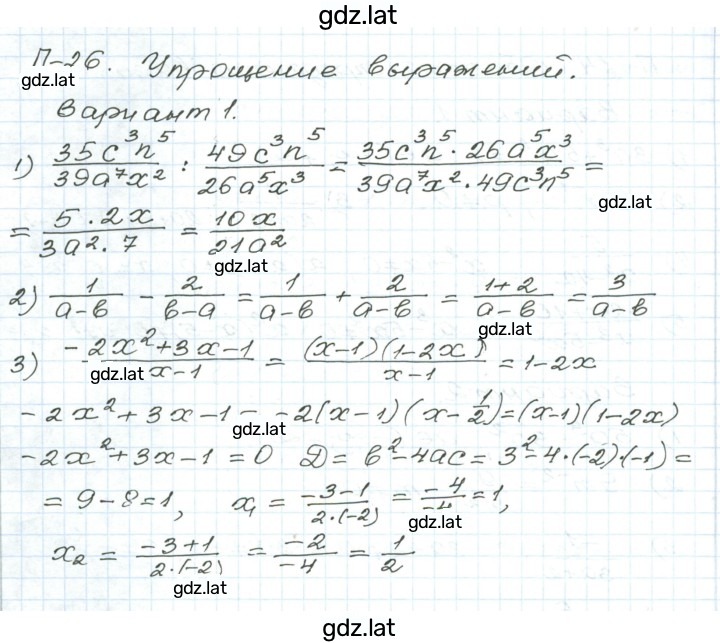 gdz.lat
П-26. Упрощение выражений.
gdz.lat
Вариант 1.
1) 35c³n⁵/39a⁷x² : 49c³n⁵/26a⁵x³ = 35c³n⁵·26a⁵x³/39a⁷x²·49c³n⁵ =
gdz.lat
= 5·2x/3a²·7 = 10x/21a²
gdz.lat
2) 1/a-в - 2/в-a = 1/a-в + 2/a-в = 1+2/a-в = 3/a-в
gdz.lat
3) -2x²+3x-1/x-1 = (x-1)(1-2x)/x-1 = 1-2x
gdz.lat
-2x²+3x-1 = -2(x-1)(x-1/2)=(x-1)(1-2x)
gdz.lat
-2x²+3x-1=0 D= в²-4ac= 3²-4·(-2)·(-1) =
= 9-8=1, x₁ = -3-1/2·(-2) = -4/-4 = 1,
gdz.lat
x₂ = -3+1/2·(-2) = -2/-4 = 1/2
gdz.lat
gdz.lat